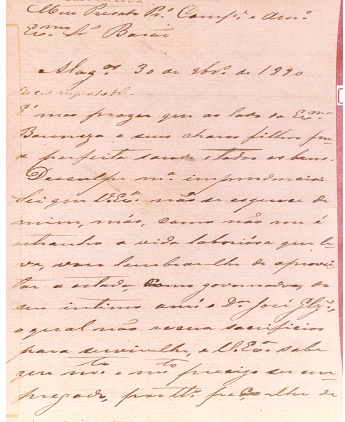 Meu Presado Pr.º Comp.e e Am.º
Ex.mo Sr. Barão
Alag.as 30 de 9br.º de 1890
É meu prazer que ao lado da Ex.ma
Baroneza e seus charos filhos
perfeita saude e todos os bens.
Desculpe m.ª imprudencia
sei que V. Ex.ª não se esquece de
mim, más, como não me é
extranho a vida laboriosa que le-
va, vou lembrar-lhe de aprovei-
tar a estada como governador, do
seu intimo amº o Dr. José
o qual não recusa sacrificios
para servir-lhe, e V. Ex.ª sabe
que m.to e m.to preciso ser em
pregado, por tt.º peço-lhe de